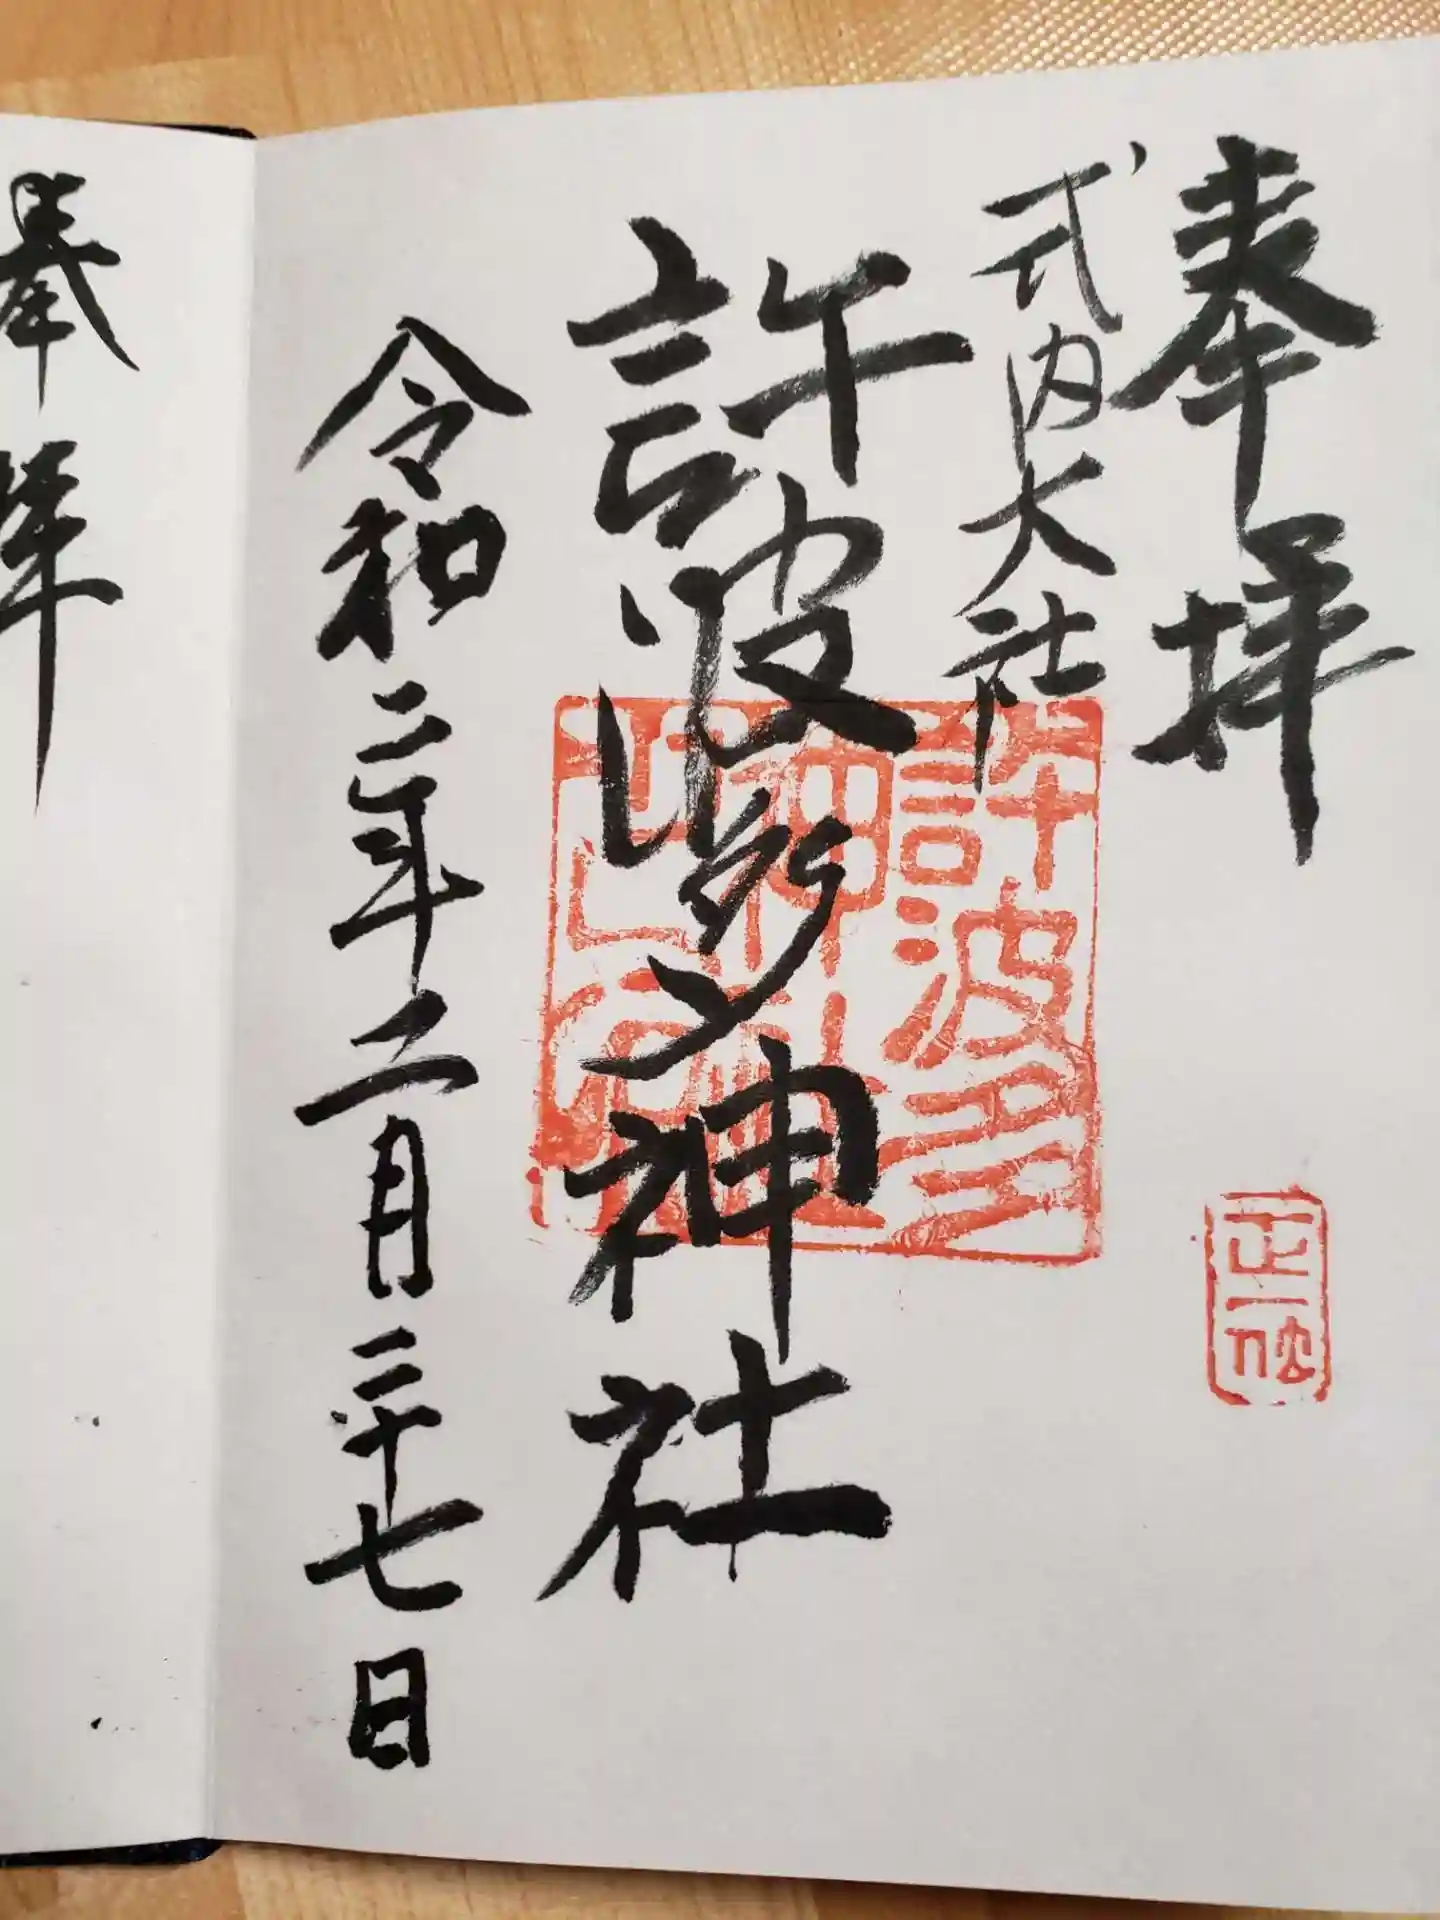 奉拝
正一位
式内大社
許波多神社
許波多
令和二年二月二十七日
奉拝